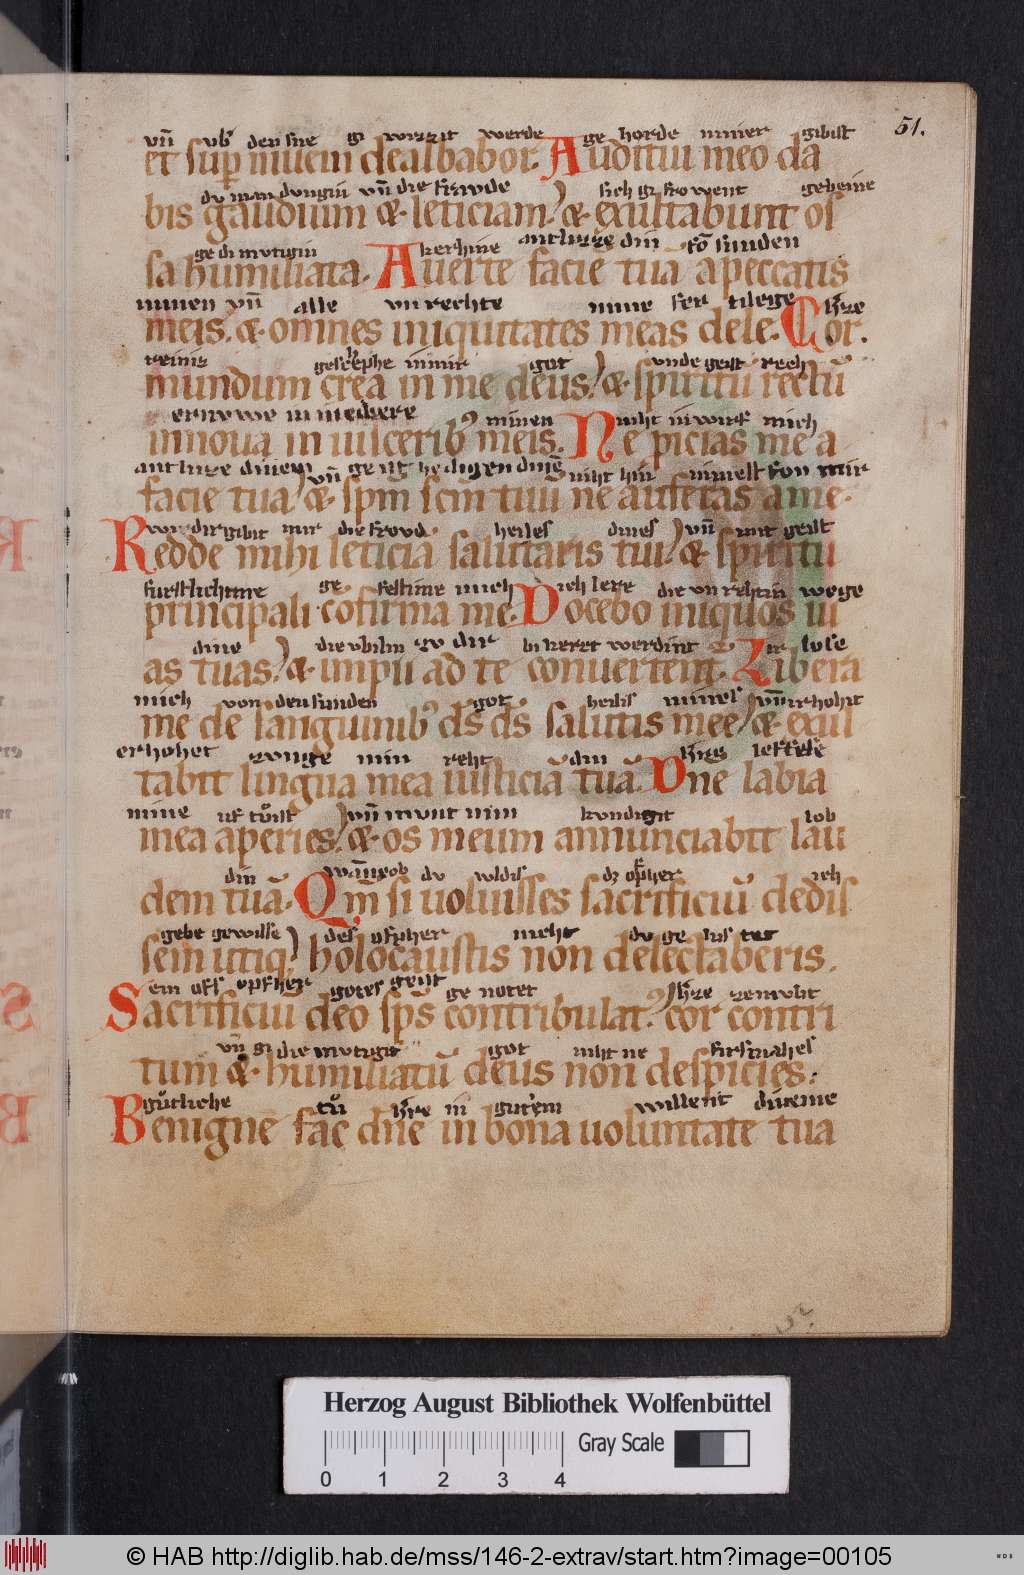 51.
vn̄ vb̓ den sne gi wizzit werde ge horde minier gibist
et sup̱ niuem dealbabor. Auditui meo da
du man dungin vn̄ die fravde sich gi frowent gebeine
bis gaudium &· leticiam? &· exultabunt os
ge di mvtigin kerhine antluzze din fō sunden
sa humiliata· Auerte faciē tuā a peccatis
minen vn̄ alle vn rechte mine
meis? &· omnes iniquitates meas dele· Cor·
reiniz mir got vnde geist rech
mundum crea in me deus? &· spiritū rectū
ernewe in minen
innoua in uiscerib᾽ meis. Ne ꝓicias me a
antluze dinem vn̄ niht hin nimest fon mir
facie tua? &· spm̄ scm̄ tuū ne auferas a me·
gibit mir die frovd heiles dines vn̄ mit geist
Redde mihi leticiā salutaris tui? &· spiritu
furstlichime ge festime mich ich lere die vn rehtin wege
principali cōfirma me· Docebo iniquos ui
dine die vbiln zv dir bi keret werdint lose
as tuas? &· impii ad te conuertent̄. Libera
mich von den sunden got heilis mines vn̄ irhohit
me de sanguinib᾽ ds̄ ds̄ salutis mee? &· exul
erhohet zvnge min reht din
tabit lingua mea iusticiā tuā. Dn̄e labia
mine uf tůist vn̄ mvnt min kundigit lob
mea aperies? &· os meum annunciabit lau
din du woldis dz opher ich
dem tuā· Qm̄ si uoluisses sacrificiū dedis
gebe gewisse des opfher nieht du ge lus tet
sem utiq? holocaustis non delectaberis.
ein opfher gotes geist ge notet
Sacrificiū deo sps̄ contribulat᾽? cor contri
vn̄ gi die mvtigit got niht ne firsmahes
tum &· humiliatū deus non despicies:
gůtliche tů in gutem willent dineme
Benigne fac dn̄e in bona uoluntate tua
Herzog August Bibliothek Wolfenbüttel
0 1 2 3 4 Gray Scale
© HAB http://diglib.hab.de/mss/146-2-extrav/start.htm?image=00105